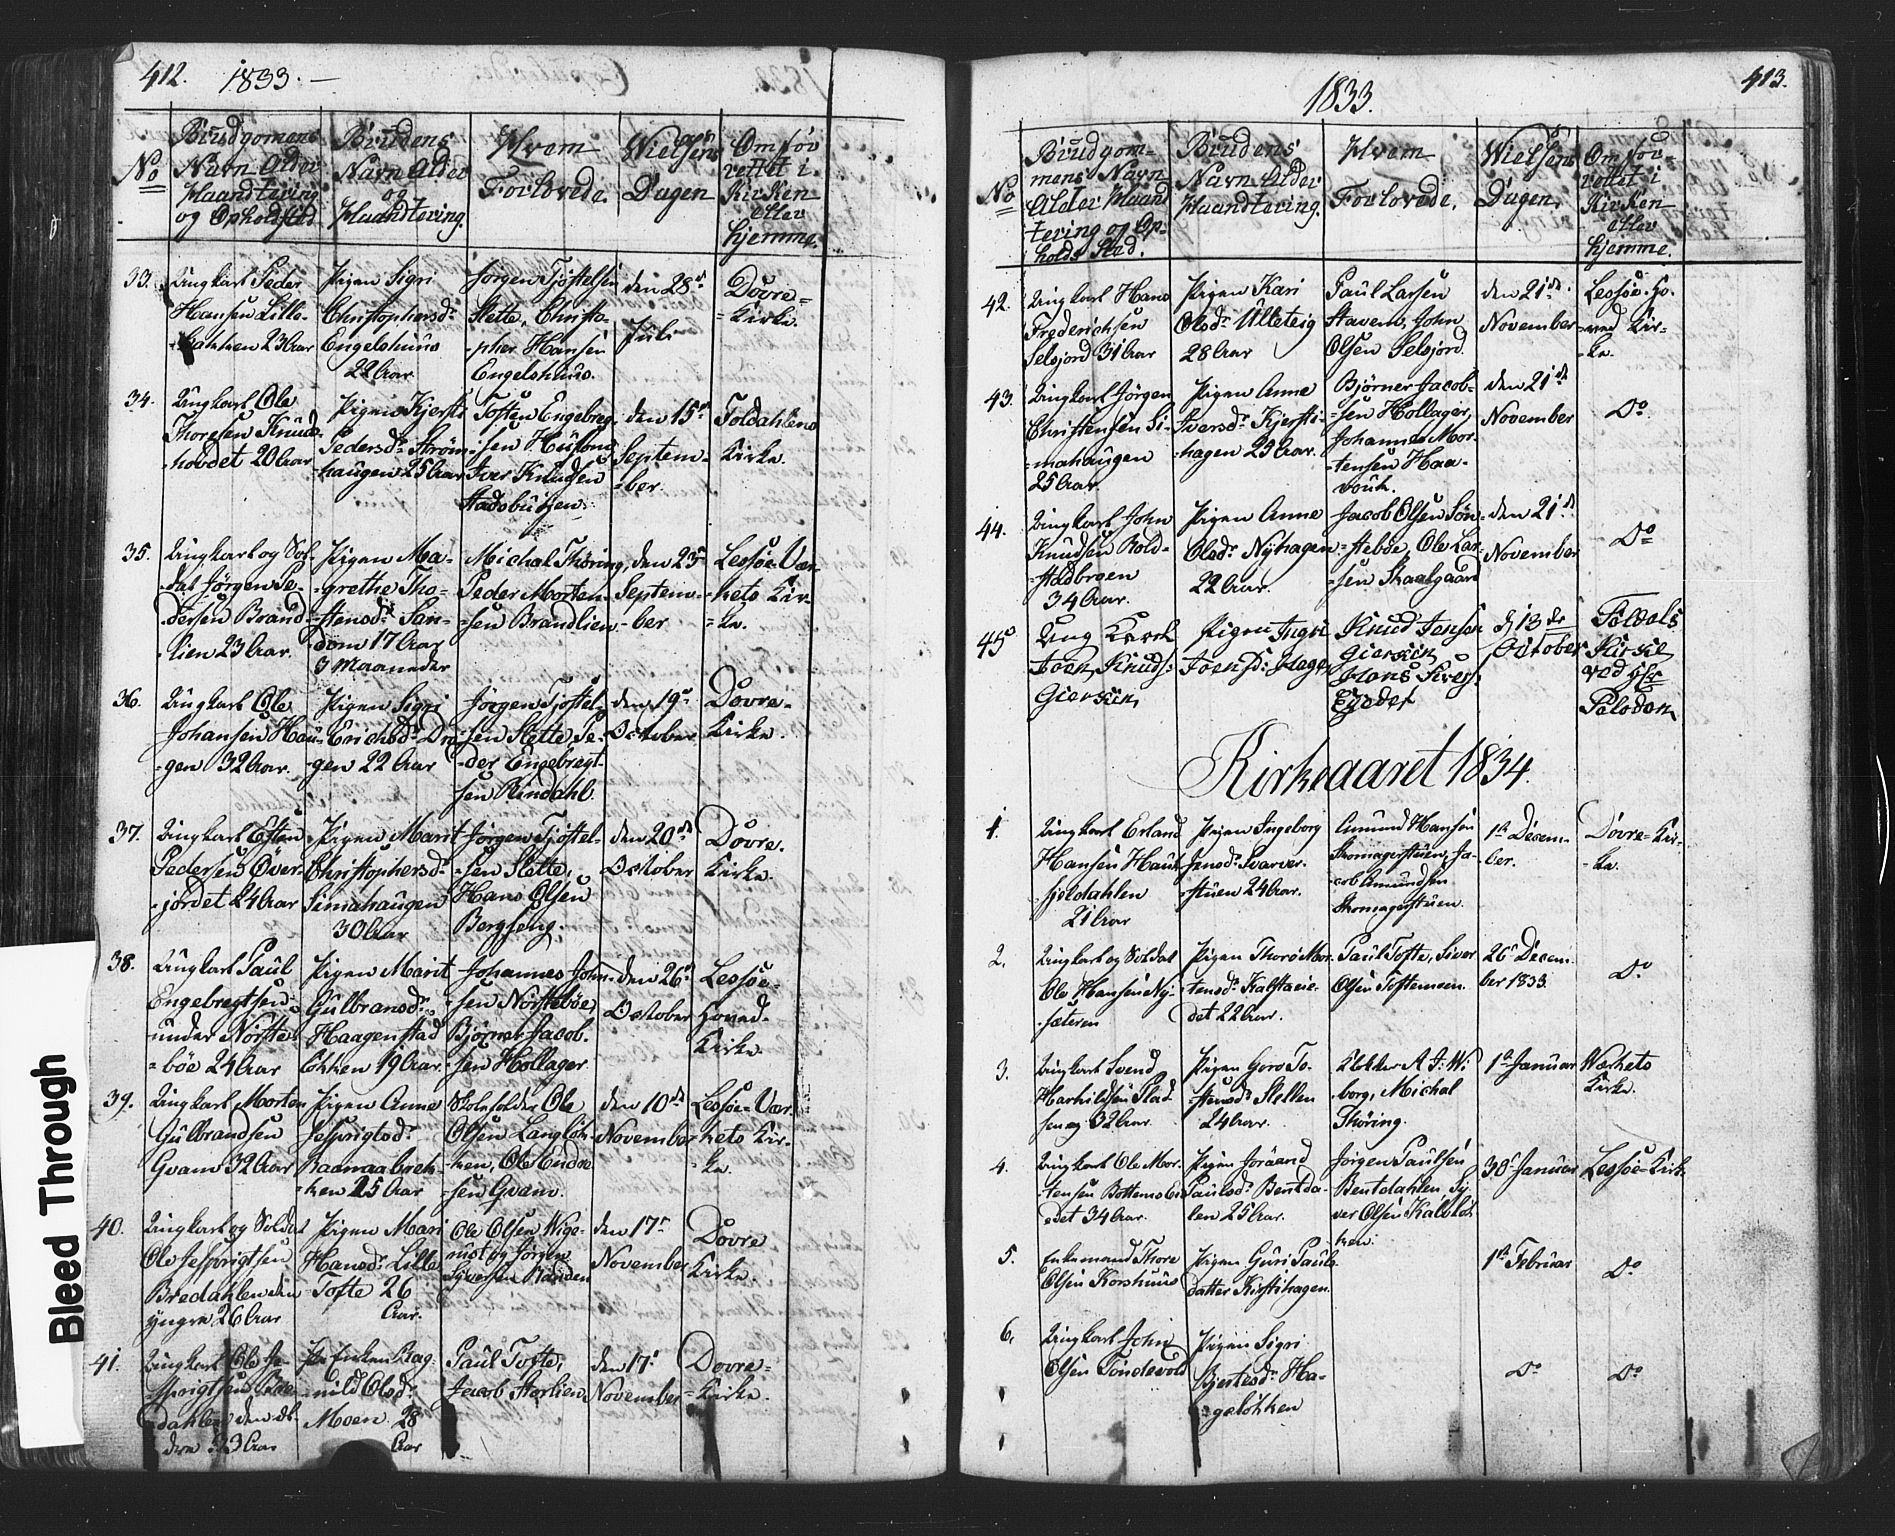 412. 1833.
No
Brudgomens
Navn Alder
Haandtering
og Opholdsted
Brudens
Navn Alder
og
Haandtering.
Hvem
Forlovede.
Vielsens
Dagen
Om for
rettet i
Kirken
eller
hjemme.
33.
Ungkarl Peder
Hansen Lille
23 Aar
Pigen Sigri
Christophersdr
Engelshuus
22 Aar
Jørgen Tjøstelsen
Slette, Christo-
-pher Hansen
Engelshuus.
den 28de
Juli
Dovre=
=Kirke.
34.
Ungkarl Ole
Thoresen Knuds-
-hovdet 20 Aar
Pigen Kjersti
Pedersdr Strøm-
-haugen 25 Aar
Tosten Engebreg-
-sen
Iver Knudsen
den 15de
Septem-
-ber
Foldahlens
Kirke.
35.
Ungkarl og Sol-
-dat Jørgen Pe-
dersen Brand-
-lien 23 Aar.
Pigen Ma-
-grethe Tho-
-stensdr San-
-dom 17 Aar
3 Maaneder
Michal Thøring,
Peder Morten-
-sen Brandlien
den 25
Septem-
-ber
Lessøe Vær-
-kets Kir-
-ke.
36.
Ungkarl Ole
Johansen Hau-
-gen 32 Aar.
Pigen Sigri
Erichsdr
-gen 22 Aar
Jørgen Tjøstel-
-sen Slette, Pe-
-der Engebregt-
-sen Rindahl.
den 19de
October
Dovre-
Kirke.
37.
Ungkarl Esten
Pedersen Over-
-jordet 24 Aar
Pigen Marit
Christophersdr
Simahaugen
30 Aar
Jørgen Tjøstel-
-sen Slette,
Hans Olsen
Bergseng.
den 20de
October
Dovre-
Kirke.
38.
Ungkarl Paul
Engebregtsen
under Nørste-
=bøe 24 Aar
Pigen Marit
Gulbransdr
Haagenstad
løkken 19 Aar
Johannes John-
-sen Nørstebøe,
Bjørner Jacob-
-sen Hollager
den 26de
October
Lessøe-
Hoved-
Kirke.
39.
Ungkarl Morten
Gulbrandsen
Qvam 32 Aar
Pigen Anne
Jesprigtsdr
-ken 25 Aar
Skoleholder Ole
Olsen Langløk-
-ken, Ole Endre-
-sen Qvam.
den 10de
November
Lessøe-Vær-
-kets Kir-
-ke.
40.
Ungkarl og Soldat
Ole Jesprigtsen
Bredahlen den
yngre 26 Aar
Pigen Mari
Hansdr Lille
Tofte 26
Aar.
Ole Olsen Wige-
-rust og Jørgen
Syversen Randen
den 17de
November
Dovre
Kirke.
41.
Ungkarl Ole Je-
-sprigtsen Bre-
dahlen den æl-
dre 33 Aar
Enken Rag-
-nild Olsdr
Moen 28
Aar
Paul Tofte,
Jacob Storlien
den 17de
November
Dovre-
-Kirke.
1833.
413.
No
Brudgom-
mens Navn
Alder Haand
tering og Op-
holds Sted.
Brudens
Navn Alder
Haandtering.
Hvem
Forlovede.
Vielsens
Dagen.
Om for-
rettet i
Kirken
eller
hjemme.
42.
Ungkarl Hans
Frederichsen
Selsjord 31 Aar
Pigen Kari
Olsdr Ulleteig
28 Aar
Paul Larsen
Stavem, John
Olsen Selsjord.
den 21de
November
Lessøe-Ho-
-ved Kir-
-ke.
43.
Ungkarl Jørgen
Christensen Si-
-mahaugen
25 Aar.
Pigen Anne
Iversdr Kjersti-
-hagen 23 Aar.
Bjørner Jacob-
-sen Hollager,
Johannes Mor-
-tensen Haa-
den 21de
November
Do
44.
Ungkarl John
Knudsen Rold-
34 Aar.
Pigen Anne
Olsdr Nyhagen
22 Aar.
Jacob Olsen Søn-
-stebøe, Ole Lar-
-sen Skaalgaard
den 21de
November
Do
45
Ung Karl
Joen Knuds:
Pigen Ingri
Joensd:
Knud Jonsen
Hans Siverss:
d 13de
October
Foldals
Kirke
Kirkeaaret 1834.
1.
Ungkarl Erland
Hansen Hauk-
-joldahlen
21 Aar
Pigen Ingeborg
Jensdr Svarver-
-stuen 24 Aar.
Amund Hansen
Skomagerstuen, Ja-
-cob Amundsen
Skomagerstuen.
1ste Decem-
ber.
Dovre=Kir-
-ke.
2.
Ungkarl og Soldat
Ole Hansen Ny-
-sæteren
Pigen Thorø Mor-
-tensdr
det 22 Aar.
Paul Tofte, Siver
Olsen Toftemoen.
26de Decem-
ber 1833
Do
3.
Ungkarl Svend
32 Aar.
Pigen Goro To-
-stensdr Stellen
24 Aar.
Klokker A. J. Wi-
-borg, Michal
Thøring.
1ste Januar
Værkets
Kirke.
4.
Ungkarl Ole Mor-
-tensen
34 Aar.
Pigen Joraand
Paulsdr Bentda-
len 25 Aar.
Jørgen Paulsen
Bentdahlen, Sy-
ver Olsen
ken.
30de Januar
Lessøe-Kirk.
5.
Enkemand Thore
Olsen Korshuus
Pigen Guri Pauls-
datter Kirstihagen.
1ste Februar
Do
6.
Ungkarl John
Olsen Tondevold
Pigen Sigri
Ha-
-geløkken
Do
Do
Bleed Through